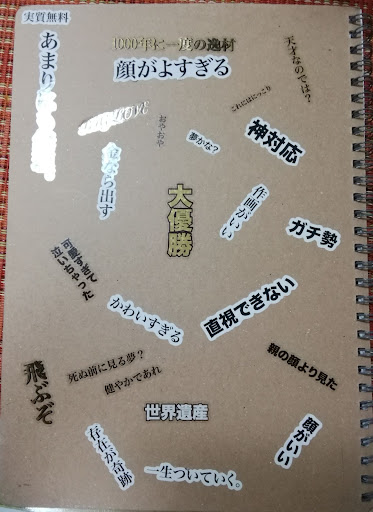 実質無料
1000年に一度の逸材
顔がよすぎる
天才なのでは?
あまり
これにはにっこり
おやおや
夢かな?
神対応
なら出す
作画がいい
大優勝
ガチ勢
尊すぎて
泣いちゃった
かわいすぎる
直視できない
親の顔より見た
飛ぶぞ
死ぬ前に見る夢?
健やかであれ
世界遺産
顔がいい
存在が奇跡
一生ついていく。